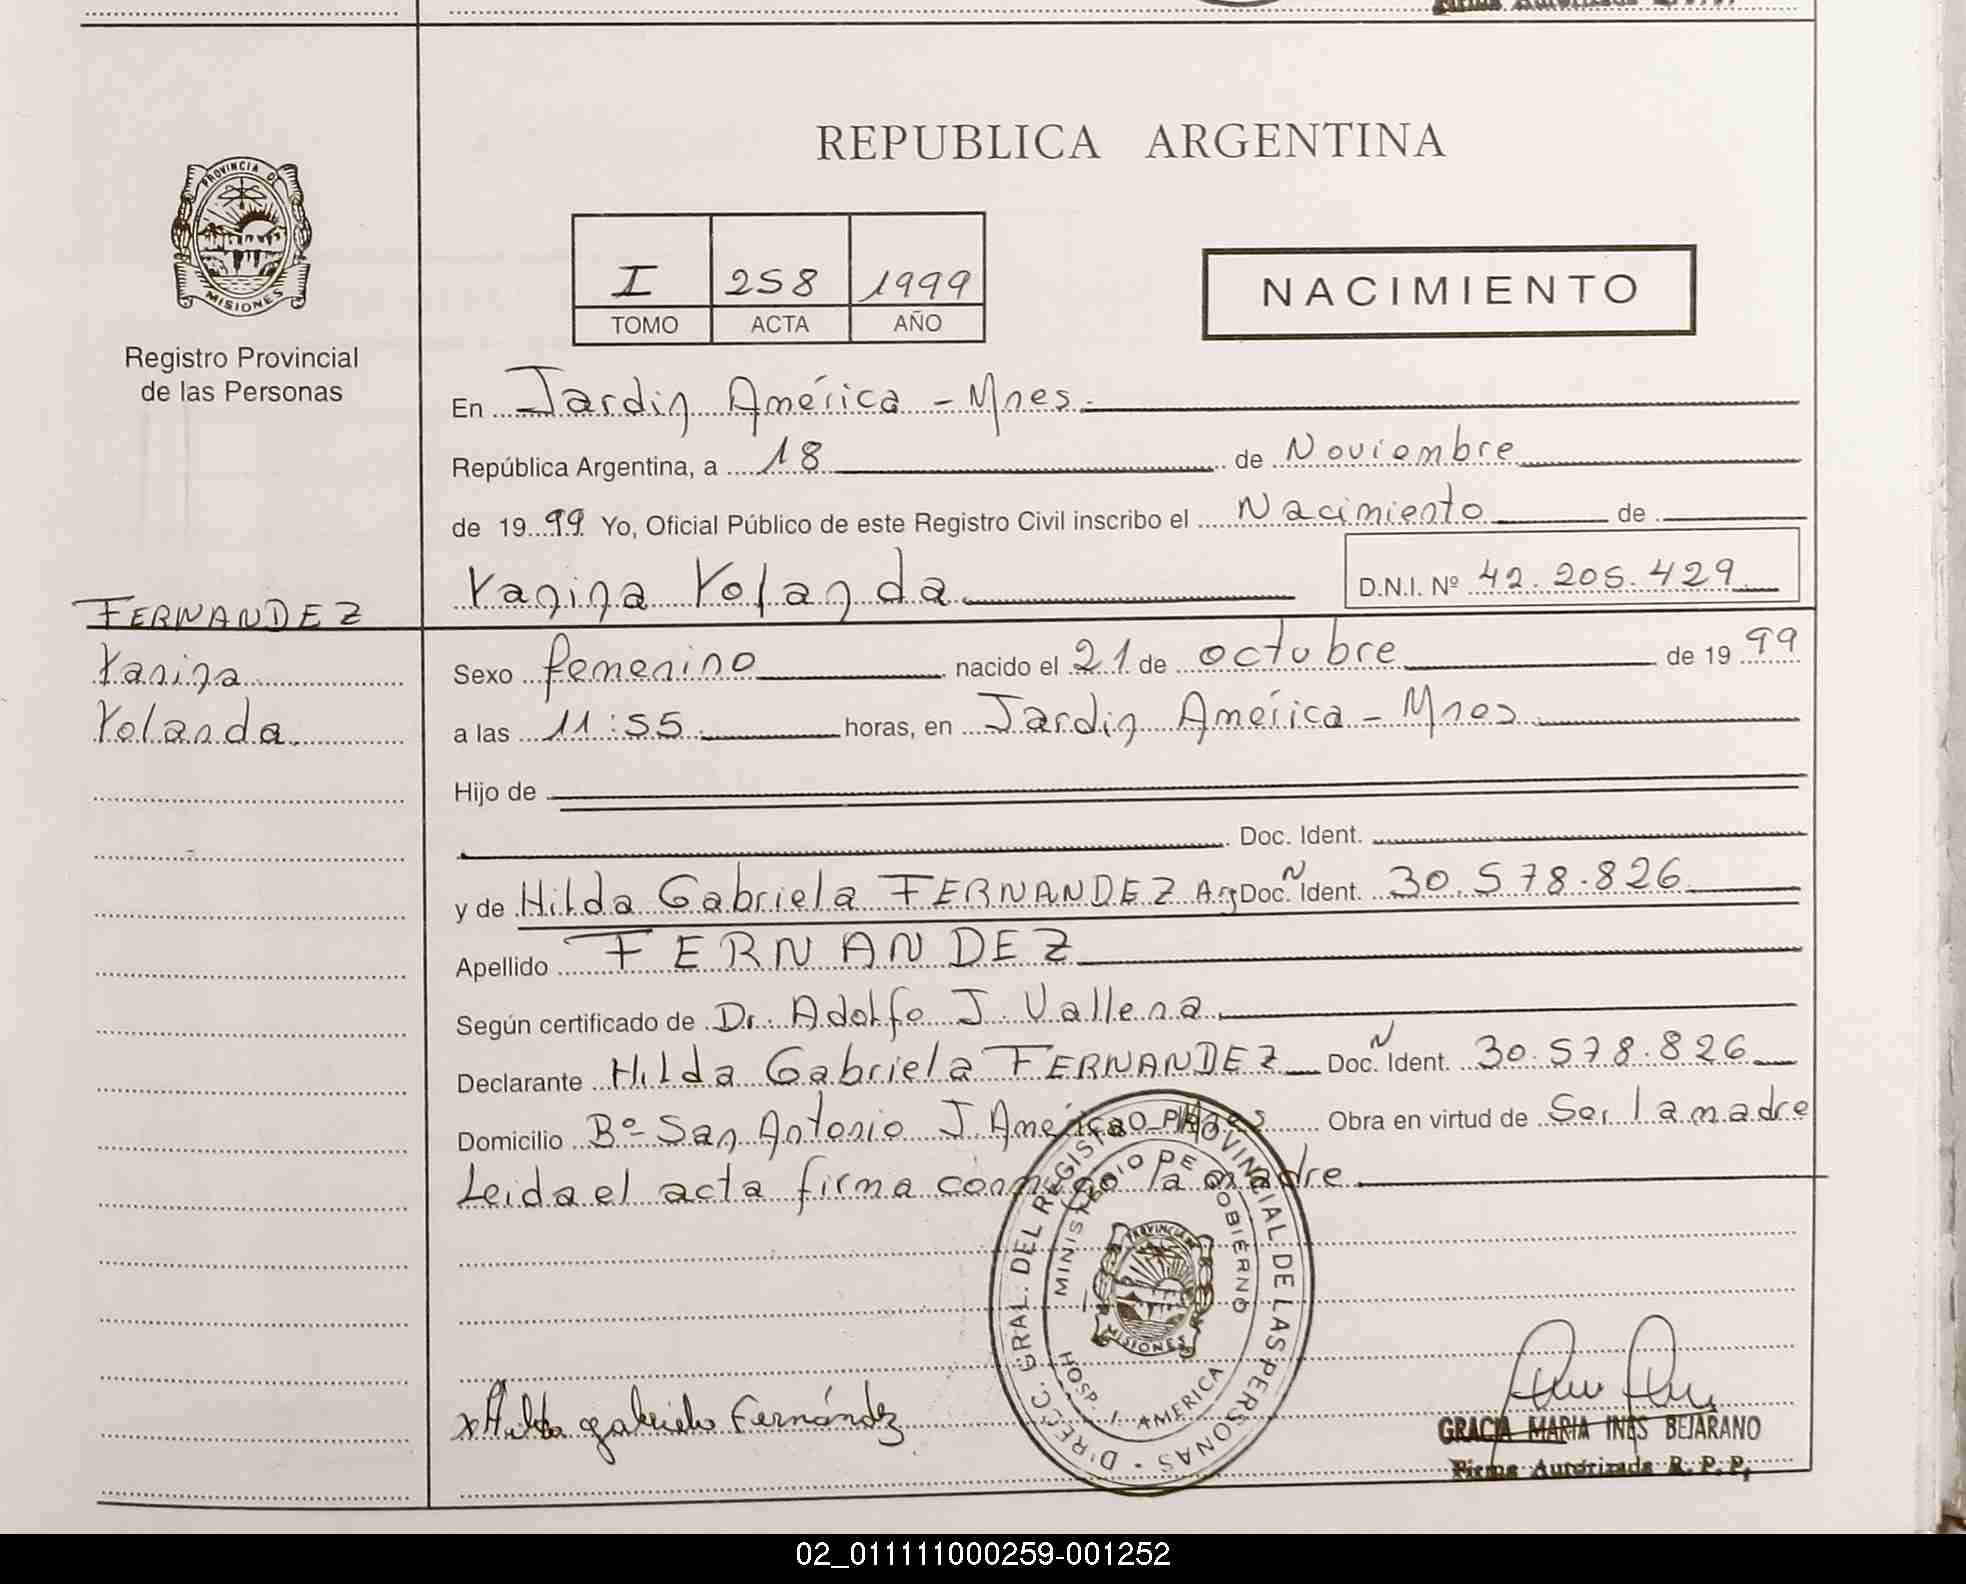 REPUBLICA ARGENTINA
PROVINCIA DE
MISIONES
Registro Provincial
de las Personas
I 258 1999
TOMO ACTA AÑO
NACIMIENTO
En Jardin América - Mnes.
República Argentina, a 18 de Noviembre
de 19 99 Yo, Oficial Público de este Registro Civil inscribo el Nacimiento de
Yanina Yolanda D.N.I. Nº 42.205.429
FERNANDEZ
Yanina
Yolanda
Sexo femenino nacido el 21 de octubre de 19 99
a las 11:55 horas, en Jardin América - Mnes
Hijo de
Doc. Ident.
y de Hilda Gabriela FERNANDEZ Arg Doc. N Ident. 30.578.826
Apellido FERNANDEZ
Según certificado de Dr. Adolfo J. Vallena
Declarante Hilda Gabriela FERNANDEZ Doc. N Ident. 30.578.826
Domicilio Bº San Antonio J. América Mnes Obra en virtud de Ser la madre
Leida el acta firma conmigo la madre
DIRECC. GRAL. DEL REGISTRO PROVINCIAL DE LAS PERSONAS
MINISTERIO DE GOBIERNO
PROVINCIA DE
MISIONES
HOSP. J. AMERICA
x Hilda gabriela Fernández
GRACIA MARIA INES BEJARANO
Firma Autorizada R. P. P.
02_011111000259-001252